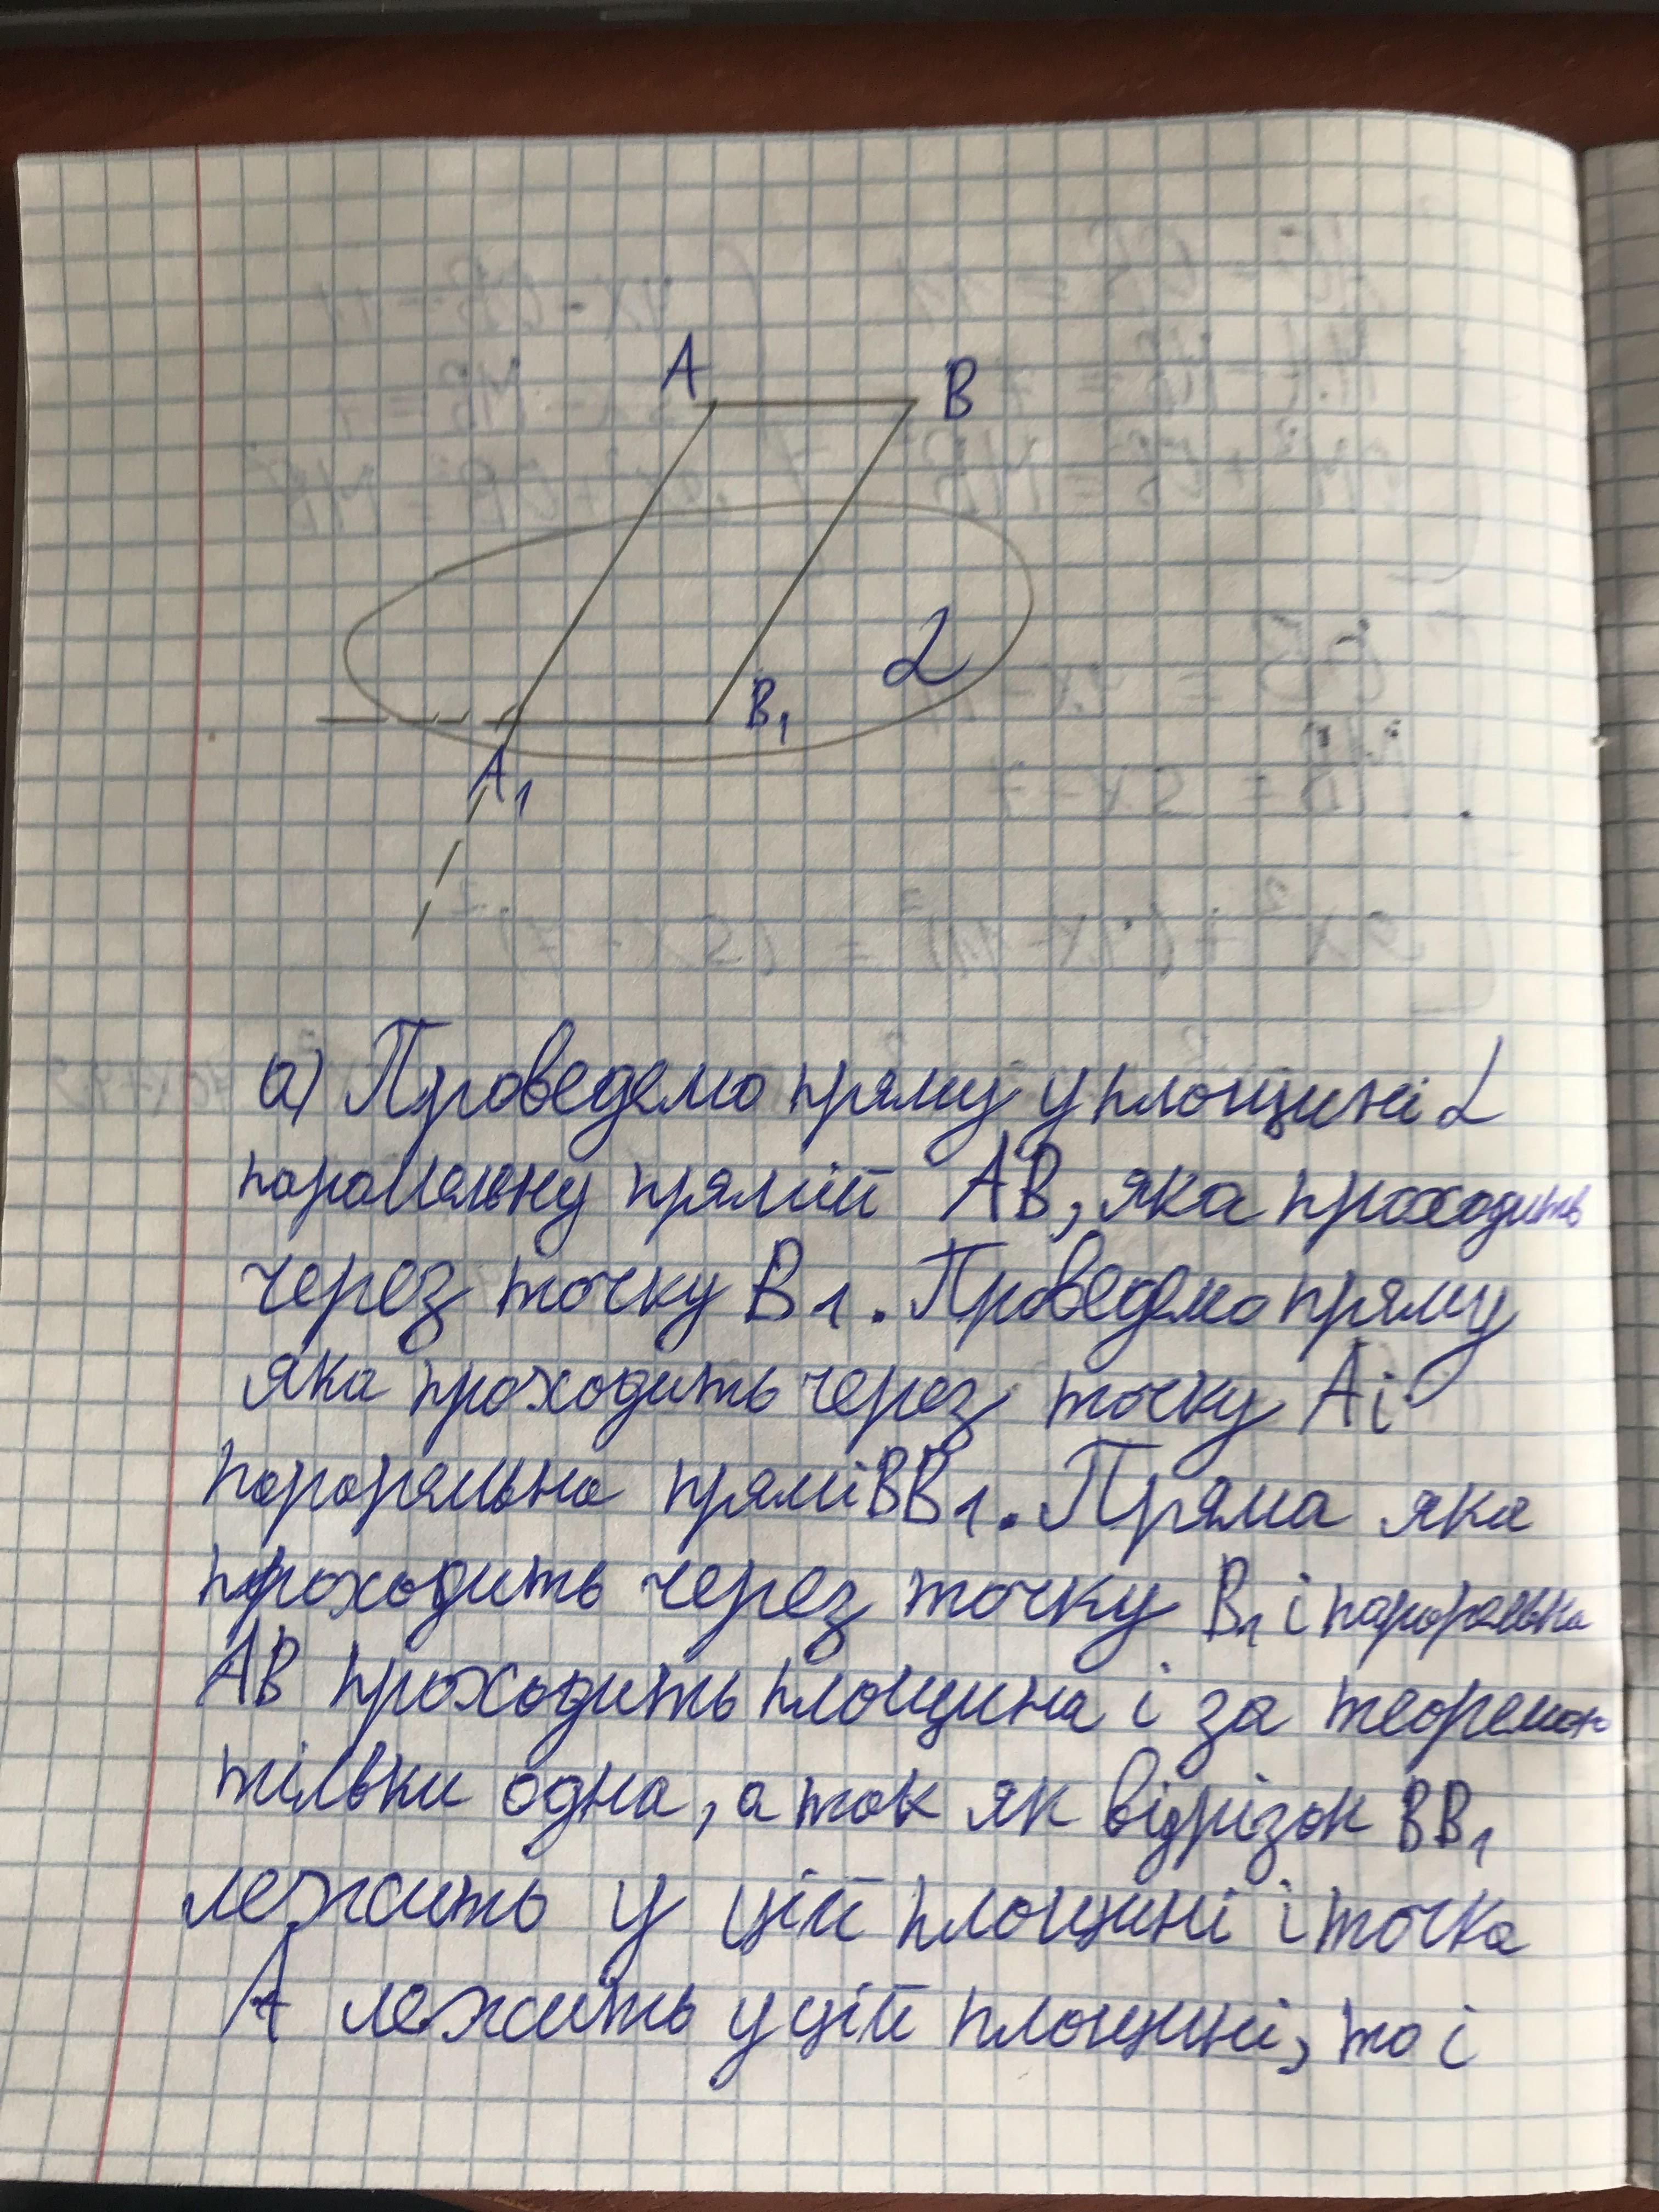 A
B
α
B₁
A₁
а) Проведемо пряму у площині α
паралельну прямій AB, яка проходить
через точку B1. Проведемо пряму
яка проходить через точку A і
парорельна прямі BB1. Пряма яка
проходить через точку B1 і парорельна
AB проходить площина і за теоремою
тільки одна, а так як відрізок BB1
лежить у цій площині і точка
A лежить у цій площині, то і